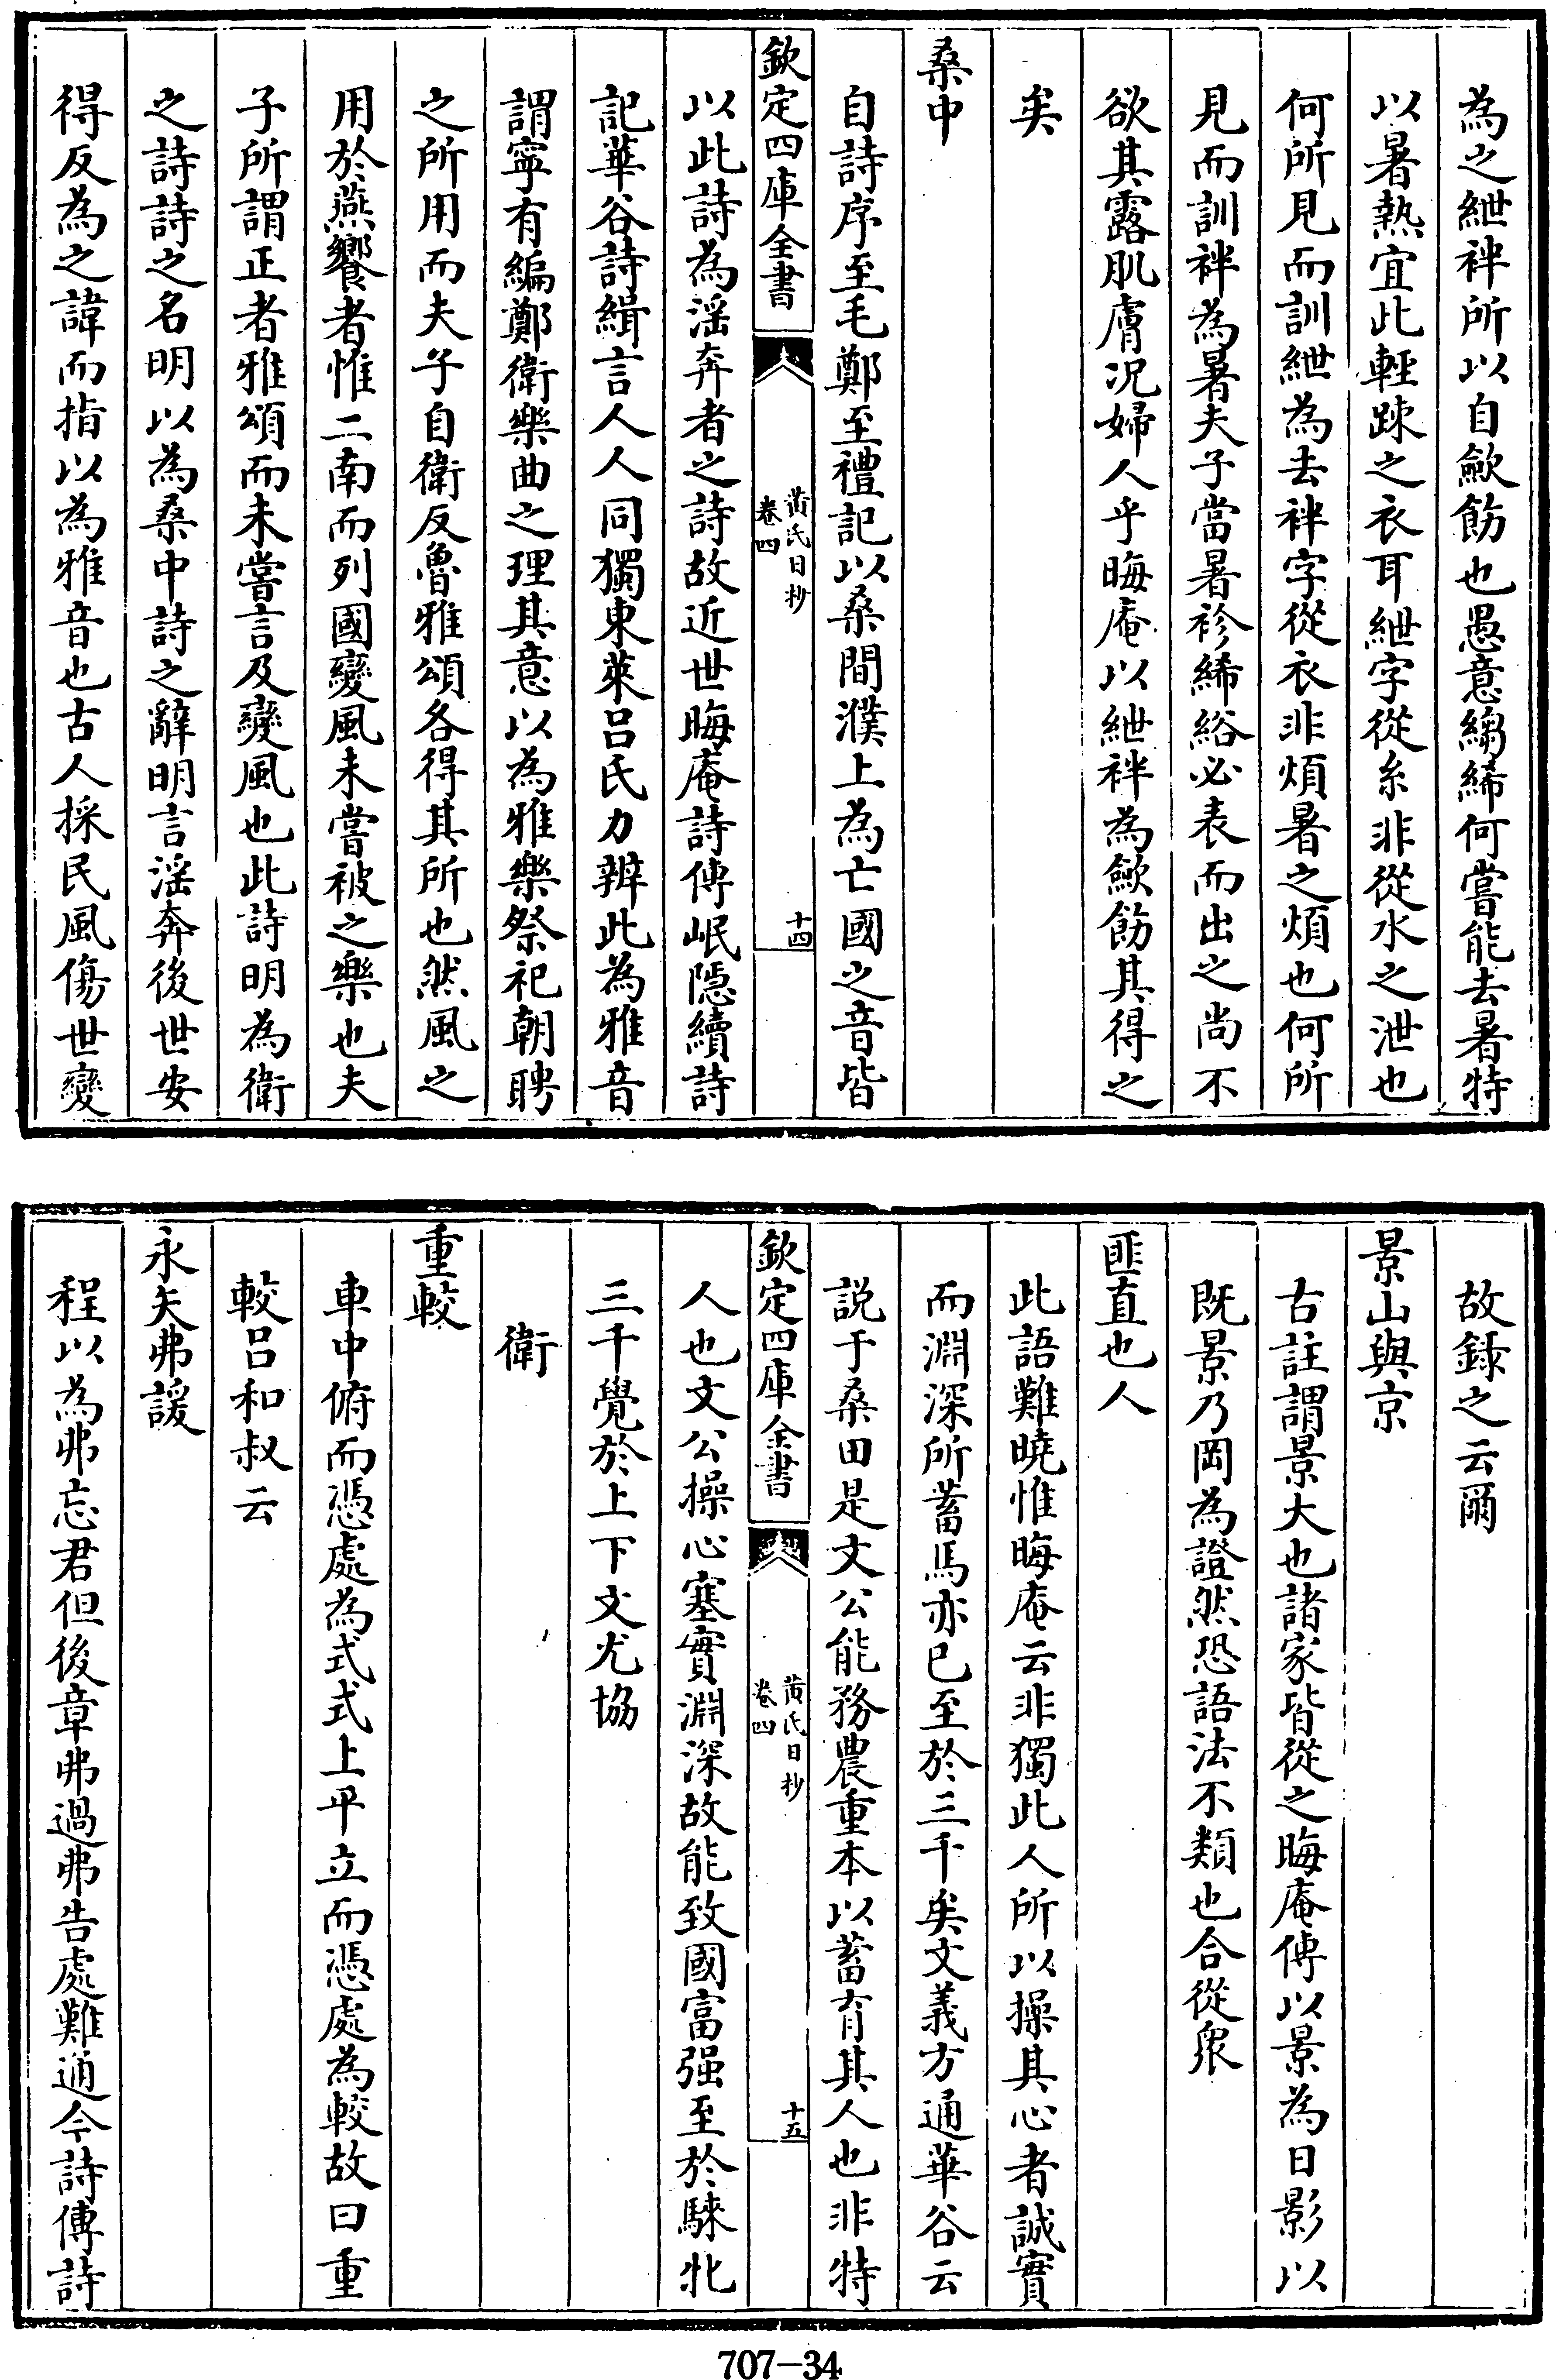 為之紲袢所以自歛飭也愚意縐絺何嘗能去暑特
以暑熱宜此輕踈之衣耳紲字從糸非從水之泄也
何所見而訓紲為去袢字從衣非煩暑之煩也何所
見而訓袢為暑夫子當暑袗絺綌必表而出之尚不
欲其露肌膚况婦人乎晦庵以紲袢為歛飭其得之
矣
桑中
自詩序至毛鄭至禮記以桑間濮上為亡國之音皆
欽定四庫全書
黃氏日抄
卷四
十四
以此詩為淫奔者之詩故近世晦庵詩傳岷隱續詩
記華谷詩緝言人人同獨東萊吕氏力辨此為雅音
謂寜有編鄭衛樂曲之理其意以為雅樂祭祀朝聘
之所用而夫子自衛反魯雅頌各得其所也然風之
用於燕饗者惟二南而列國變風未嘗被之樂也夫
子所謂正者雅頌而未嘗言及變風也此詩明為衛
之詩詩之名明以為桑中詩之辭明言淫奔後世安
得反為之諱而指以為雅音也古人採民風傷世變
故錄之云爾
景山與京
古註謂景大也諸家皆從之晦庵傳以景為日影以
既景乃岡為證然恐語法不類也合從衆
匪直也人
此語難曉惟晦庵云非獨此人所以操其心者誠實
而淵深所蓄馬亦已至於三千矣文義方通華谷云
説于桑田是文公能務農重本以蓄育其人也非特
欽定四庫全書
黃氏日抄
卷四
十五
人也文公操心塞實淵深故能致國富强至於騋牝
三千覺於上下文尤協
衛
重較
車中俯而憑處為式式上平立而憑處為較故曰重
較吕和叔云
永矢弗諼
程以為弗忘君但後章弗過弗告處難通今詩傳詩
707-34